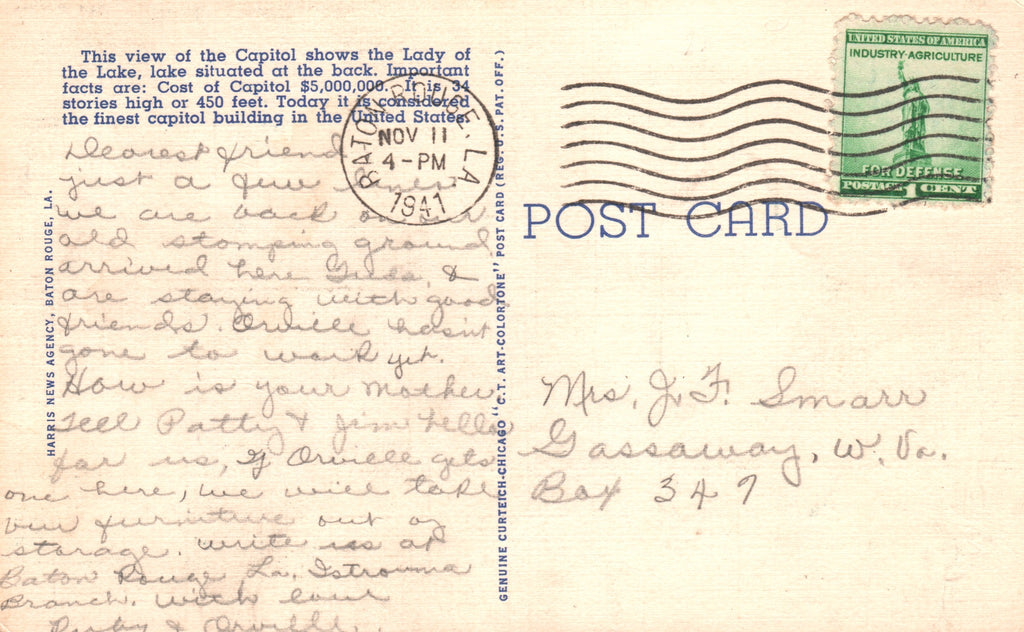 This view of the Capitol shows the Lady of
the Lake, lake situated at the back. Important
facts are: Cost of Capitol $5,000,000. It is 34
stories high or 450 feet. Today it is considered
the finest capitol building in the United States.
Dearest friend
just a few lines.
we are back on our
old stomping ground
arrived here Tues, &
are staying with good
friends. Orville hasn't
gone to work yet.
How is your Mother
Tell Patty & Jim hello
for us, If Orville gets
one here, we will take
our furniture out of
storage. write us at
Baton Rouge La. Istrouma
Branch. with love
Ruby & Orville.
HARRIS NEWS AGENCY, BATON ROUGE, LA.
GENUINE CURTEICH-CHICAGO "C.T. ART-COLORTONE" POST CARD (REG. U.S. PAT. OFF.)
BATON ROUGE, LA.
NOV 11
4-PM
1941
UNITED STATES OF AMERICA
INDUSTRY-AGRICULTURE
FOR DEFENSE
POSTAGE 1 CENT
POST CARD
Mrs. J. F. Smarr
Gassaway, W. Va.
Box 347